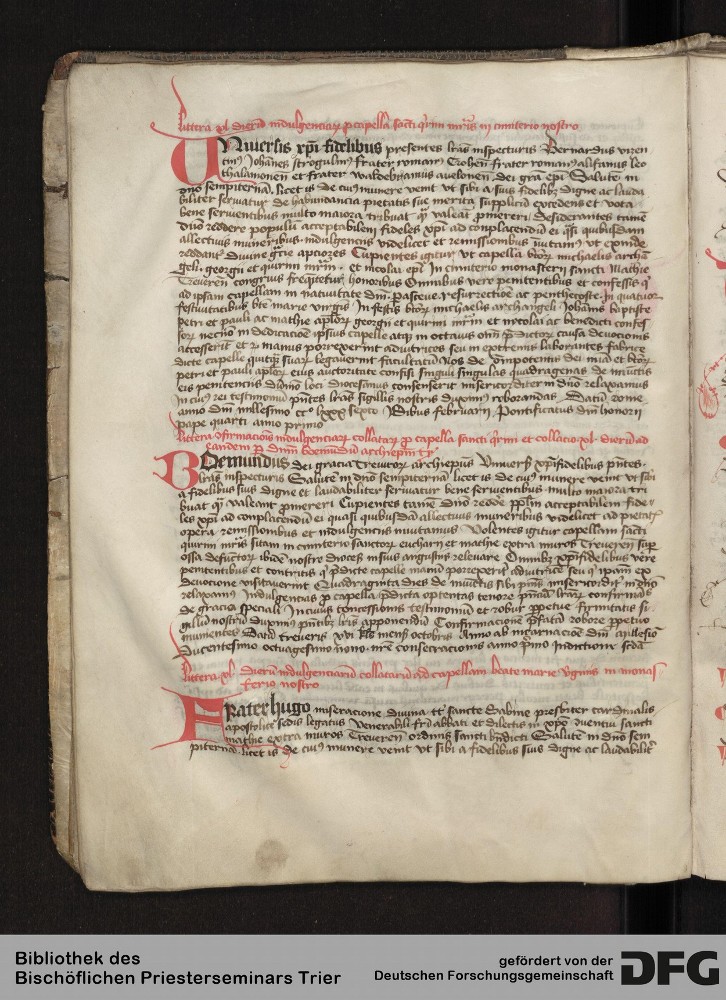 Littera xl dierũ indulgenciarꝝ p capella sancti qrini mris in cimiterio nostro
Vniuersis xpi fidelibus presentes lr̃as inspecturis Bernardus vicen
tinꝰ Johãnes frater romanꝰ frater romanꝰ leo
et frater dei gr̃a epĩ Salutẽ in
dño sempiternã. licet is de cuiꝰ munere venit vt sibi a suis fidelibꝫ digne ac lauda
biliter seruatur de habundancia pietatis sue merita supplicũ excedens et vota
bene seruientibus multo maiora tribuat qͣ̃ valeãt pmereri Desiderantes tamẽ
dño reddere populũ acceptabilem fideles xpĩ ad conplacendũ ei qͣsi quibusdam
allectiuis muneribus indulgencijs videlicet et remissionibus ut exinde
reddantͬ diuine gr̃cie apciores Cupientes igitur vt capella btõrꝝ michaelis archã
geli georgij et quirini mr̃m et nicolai epĩ In cimiterio monasterij sancti Mathie
Treuereñ congruis freq̃tetur honoribus Omnibus vere penitentibus et confessis qͥ
ad ipsam capellam in natiuitate dñi Pasceue resurrectiõe ac penthecoste In quatuor
festiuitatibus bt̃e marie virgĩs In festis btõrꝝ michaelis archangeli Johanis baptiste
petri et pauli ac mathie aplõrꝝ georgij et quirini mr̃m et nicolai ac benedicti confes
sorꝝ necnõ in dedicaciõe ipsius capelle atqꝫ in octauis om̃i p̃dictorꝝ causa deuocionis
accesserit et manus porrexerint adiutrices seu in extremis laborantes fabrice
dicte capelle quitqͣ̃ suarꝝ legauerint facultatũ Nos de om̃ipotentis dei mĩa et btõrꝝ
petri et pauli aplõrꝝ eius auctoritate confisi singuli singulas quadragenas de iniũctis
eis penitencijs dũmo loci diocesanus consenserit misericorditer in dño relaxamus
In cuiꝰ rei testimoniũ pñtes lrãs sigillis nostris duximꝰ roborandas Datũ rome
anno dñi millesimo ccͦ lxxx sexto Idibus februarij Pontificatus dñi honorij
pape quarti anno primo
Littera ꝯfirmacionis indulgenciarꝝ collatarꝝ p capella sancti qrini et collacio xl dierũ ad
eandem p dñm boemundũ archiepm̃ tr̃
Boemundus dei gracia Treuerorꝝ archiepũs Vniuerſ xpĩfidelibus pñtes
lrãs inspecturis Salutẽ in dño sempiternã licet is de cuiꝰ munere venit vt sibi
a fidelibus suis digne et laudabiliter seruiatur bene seruientibus multo maiora tri
buat qͣ̃ valeant pmereri Cupientes tamẽ dño redde pplm̃ acceptabilem fide
les xpĩ ad conplacendũ ei quasi quibusdã allectiuis muneribus videlicet ad pietatꝭ
opera remissionibus et indulgencijs inuitamus Volentes igitur capellam sãcti
quirini mr̃is sitam in cimiterio sanctorꝝ eucharij et mathie extra muros Treuereñ sup
ossa defũctorꝝ ibidẽ nostre dioceſ in suis angustijs releuare Omnibꝫ xp̃ofidelibus vere
penitentibus et contritis qͥ p̃dicte capelle manũ porrexerĩt adiutricẽ seu qͥ ipsam ex
deuocione visitauerint Quadraginta dies de iniũctis sibi pnĩs misericorditͬ in dño
relaxamꝰ Indulgencias p capella p̃dicta optentas tenore pñciũ lrãrꝝ confirmãtes
de gracia speciali In cuius concessionis testimoniũ et robur ppetue firmitatis si
gillũ nostrũ duximꝰ pñtibꝫ lrĩs apponendũ Confirmacione p̃fatã robore ppetuo
munientes Datũ treueris xvi kl̃ mensꝭ octobris Anno ab incarnacioẽ dñi millesĩo
ducentesimo octuagesimo nono nr̃e consecracionis anno p̃mo Indictione scd̃a
Littera xl dierum indulgenciarũ collatarũ ad capellam beate marie vg̃inis in monas
terio nostro
Frater hugo miseracione diuina tt̃ sancte Sabine presbiter cardinalis
apostolice sedis legatus Venerabili fr̃i abbati et dilectis in xp̃o ꝯuentui sancti
mathie extra muros Treuereñ ordinis sancti bñdicti Salutẽ in dño sem
piternã licet is de cuiꝰ munere venit vt sibi a fidelibus suis digne ac laudabilitͬ
Bibliothek des
Bischöflichen Priesterseminars Trier
gefördert von der
Deutschen Forschungsgemeinschaft
DFG